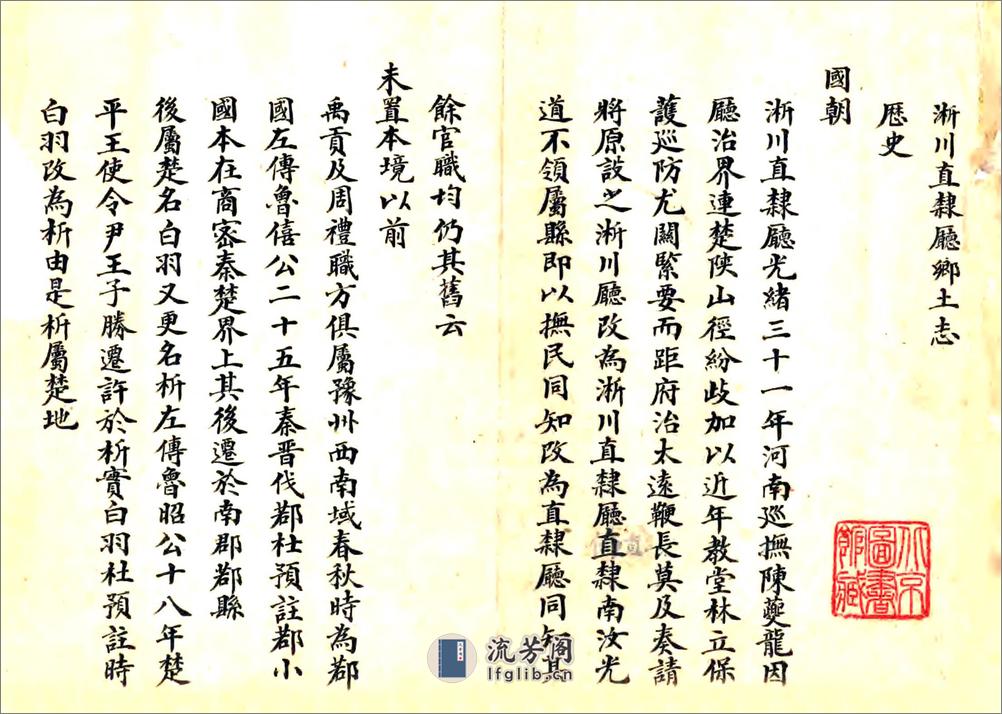 淅川直隸廳鄉土志
歷史
國朝
淅川直隸廳光緒三十一年河南巡撫陳夔龍因
廳治界連楚陝山徑紛歧加以近年教堂林立保
護巡防尤關緊要而距府治太遠鞭長莫及奏請
將原設之淅川廳改為淅川直隸廳直隸南汝光
道不領屬縣即以撫民同知改為直隸廳同知其
餘官職均仍其舊云
未置本境以前
禹貢及周禮職方俱屬豫州西南域春秋時為鄀
國左傳魯僖公二十五年秦晉伐鄀杜預註鄀小
國本在商密秦楚界上其後遷於南郡鄀縣
後屬楚名白羽又更名析左傳魯昭公十八年楚
平王使令尹王子勝遷許於析實白羽杜預註時
白羽改為析由是析屬楚地
北京
圖書
館藏
流芳阁
lfglib.cn